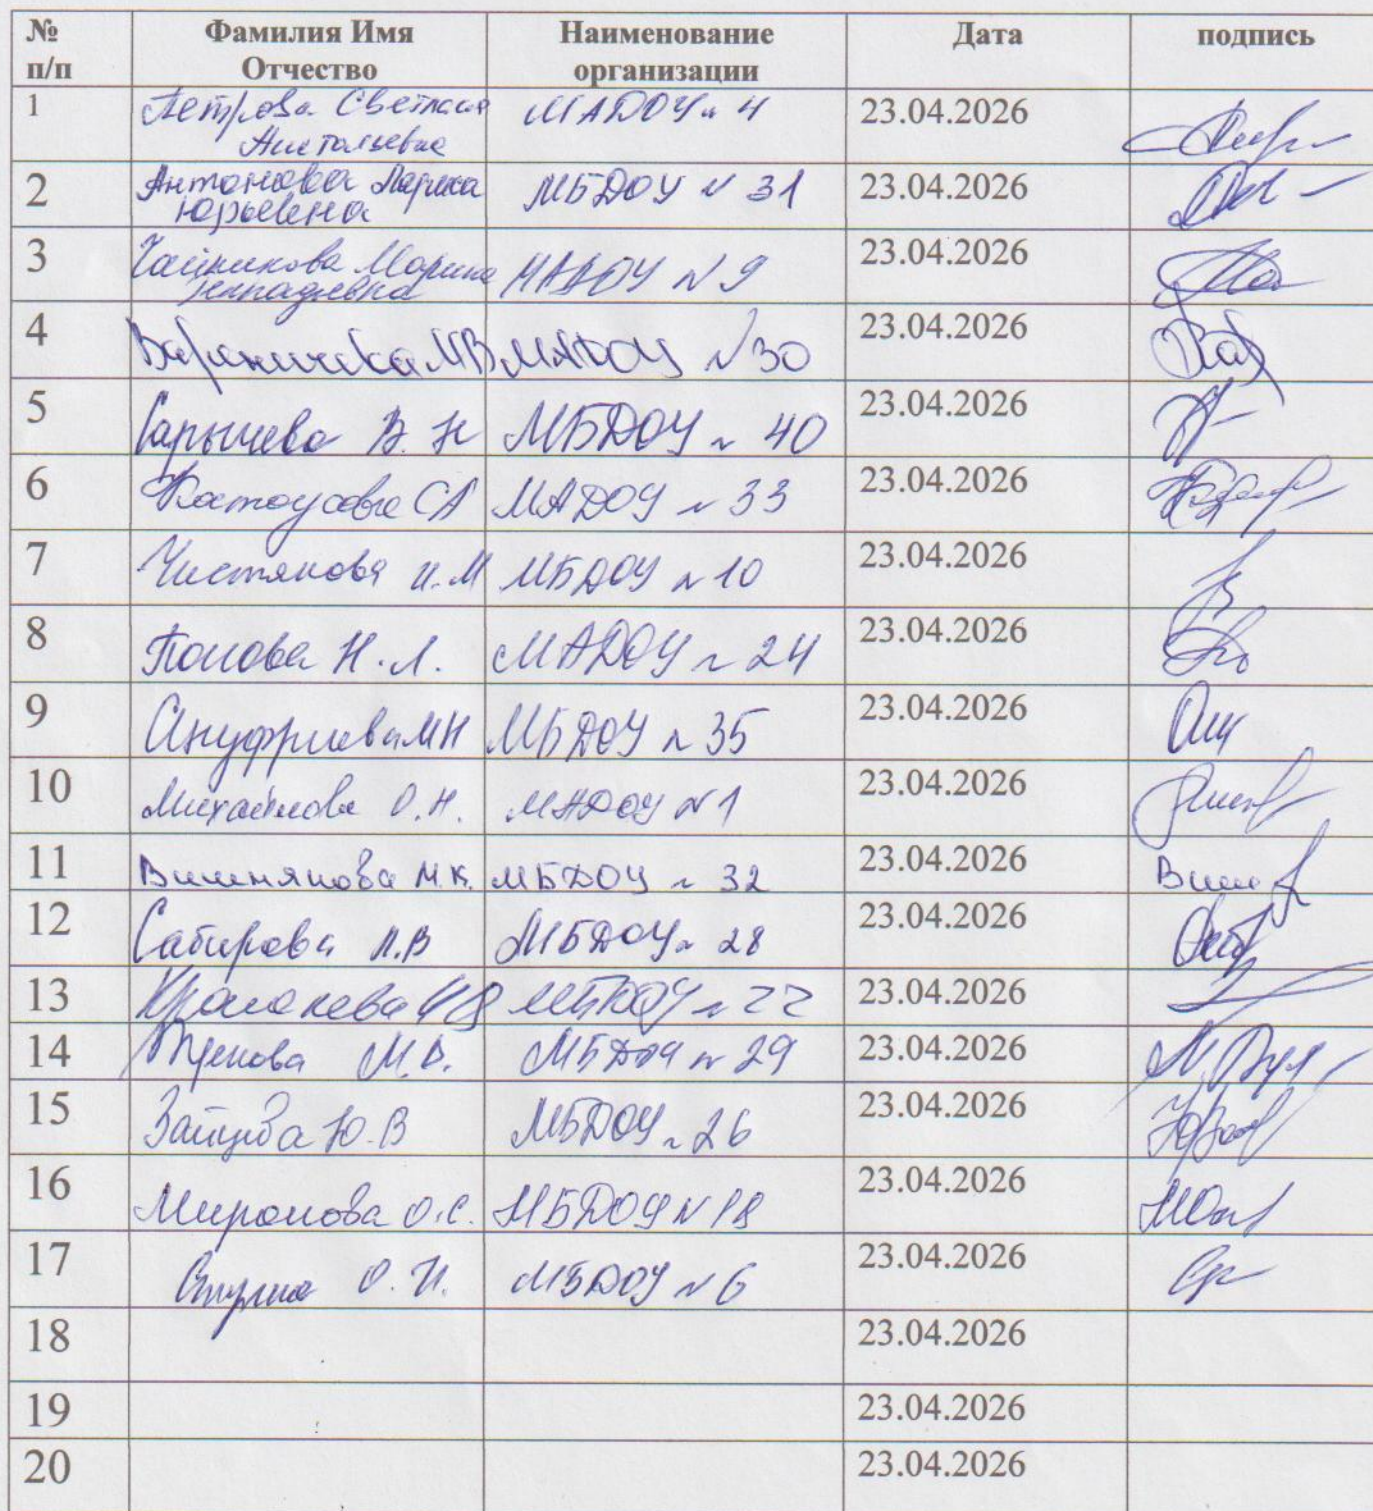 № п/п Фамилия Имя Отчество Наименование организации Дата подпись
1 Петрова Светлана Анатольевна МАДОУ № 4 23.04.2026
2 Антонова Лариса Юрьевна МБДОУ № 31 23.04.2026
3 Чайникова Марина Геннадиевна МАДОУ № 9 23.04.2026
4 МВ МАДОУ № 30 23.04.2026
5 Сарычева В. Н МБДОУ № 40 23.04.2026
6 СА МАДОУ № 33 23.04.2026
7 Чистякова И. М МБДОУ № 10 23.04.2026
8 Попова Н. Л. МАДОУ № 24 23.04.2026
9 Ануфриева МН МБДОУ № 35 23.04.2026
10 Михайлова О. Н. МАДОУ № 1 23.04.2026
11 Вишнякова М. К. МБДОУ № 32 23.04.2026
12 Сабирова Л. В МБДОУ № 28 23.04.2026
13 МБДОУ № 22 23.04.2026
14 МБДОУ № 29 23.04.2026
15 Ю. В МБДОУ № 26 23.04.2026
16 Миронова О. С. МБДОУ № 18 23.04.2026
17 МБДОУ № 6 23.04.2026
18 23.04.2026
19 23.04.2026
20 23.04.2026